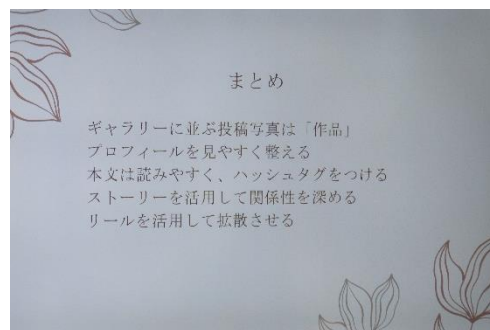 まとめ
ギャラリーに並ぶ投稿写真は「作品」
プロフィールを見やすく整える
本文は読みやすく、ハッシュタグをつける
ストーリーを活用して関係性を深める
リールを活用して拡散させる